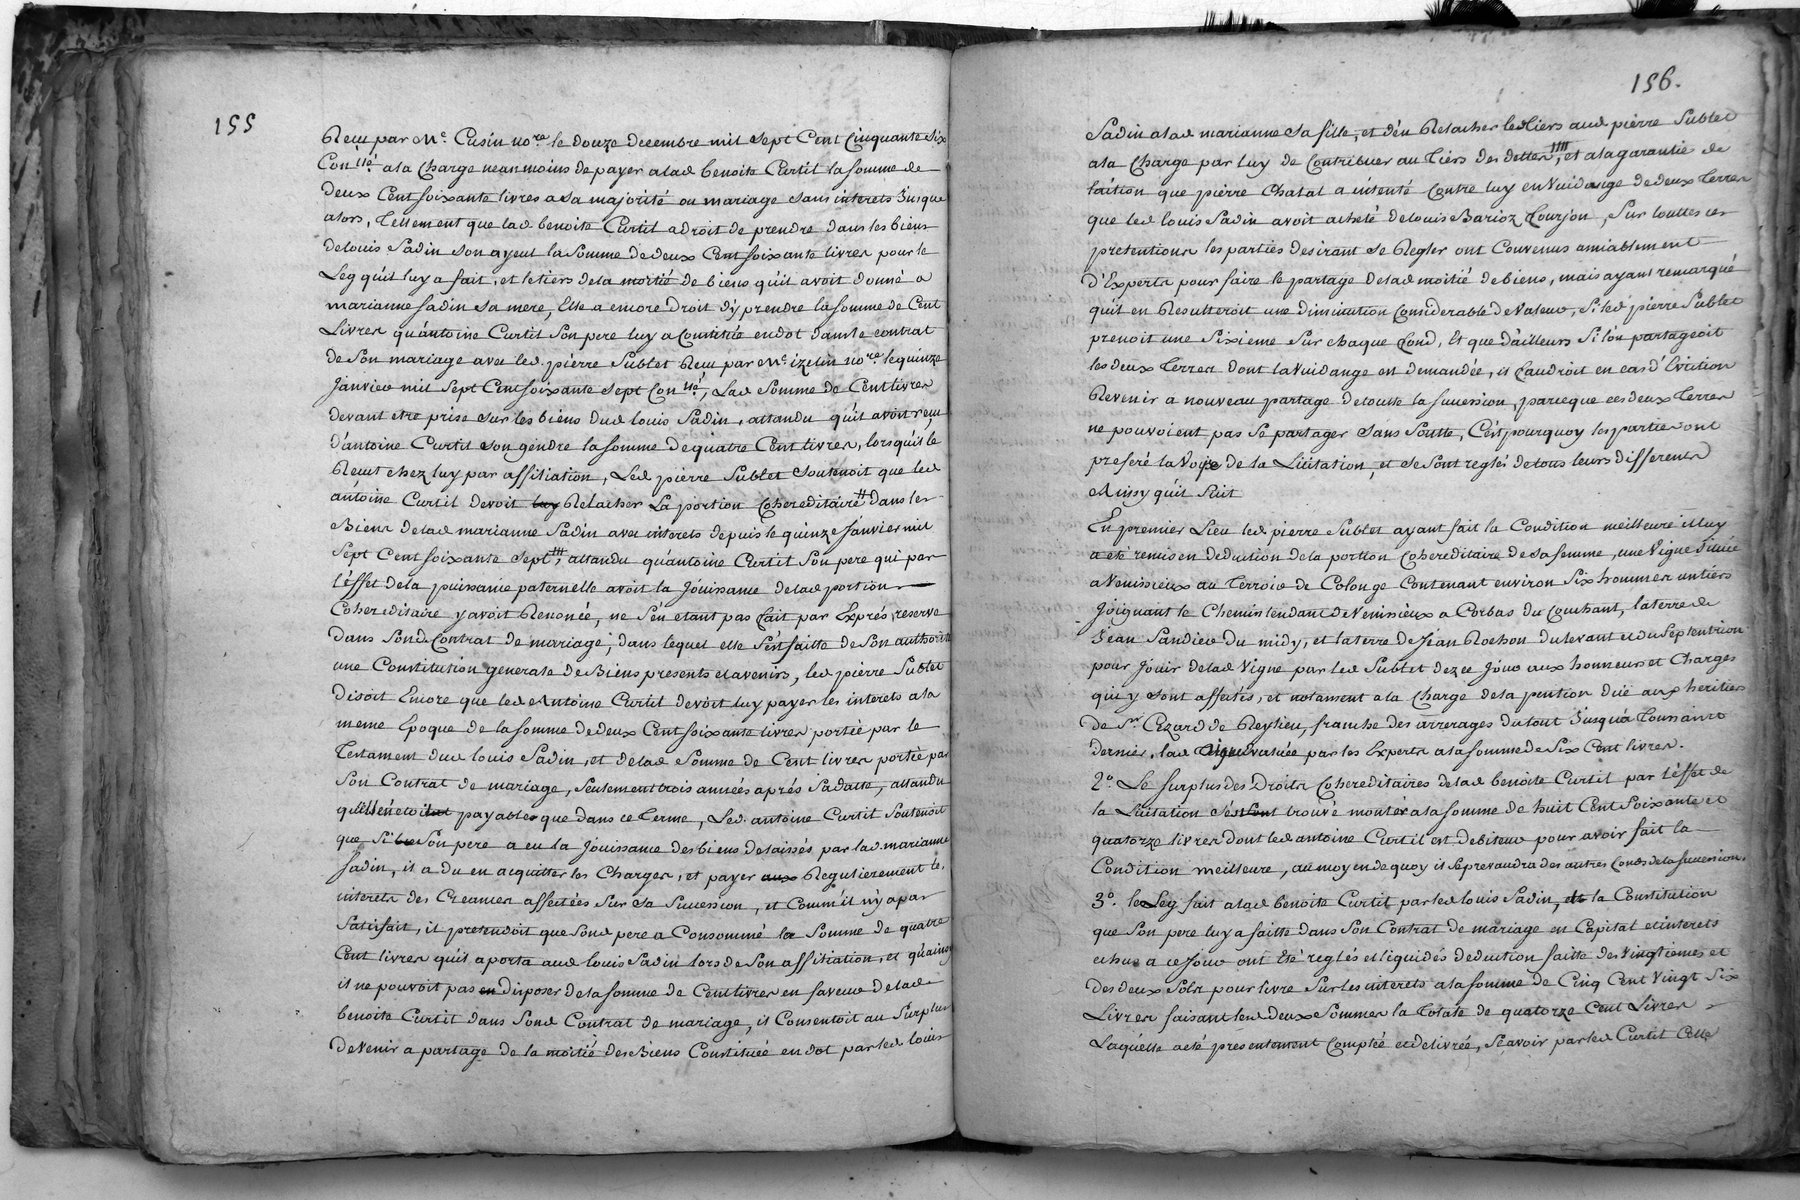 155
Recu par Me. Cusin nore le douze decembre mil sept Cent Cinquante Six
Con llé. ala Charge neanmoins de payer alad benoite Curtil la somme de
deux Cent soixante livres a sa majorité ou mariage sans interets Jusque
alors, Tellement que lad benoite Curtil a droit de prendre dans les biens
de louis Sadin son ayeul la Somme de deux Cent soixante livres pour le
Leg qu'il luy a fait, et le tiers de la moitié de biens qu'il avoit donné a
marianne Sadin sa mere, Elle a encore Droit d'y prendre la somme de Cent
Livres qu'antoine Curtil Son pere luy a Constitué en dot dans le contrat
de Son mariage avec led. pierre Sublet Recu par Me. izelin nore le quinze
Janvier mil Sept Cent soixante Sept Con llé, Lad Somme de Cent livres
devant etre prise sur les biens dud louis Sadin, attandu qu'il avoit reçu
d'antoine Curtil son gendre la somme de quatre Cent livres, lorsqu'il le
Recut chez luy par affiliation, Led pierre Sublet Soutenoit que led
antoine Curtil devoit luy Relacher La portion Cohereditaire dans les
Biens delad marianne Sadin avec interets depuis le quinze Janvier mil
Sept Cent soixante sept, attandu qu'antoine Curtil Son pere qui par
l'éffet de la puissance paternelle avoit la Jouissance delad portion
Cohereditaire y avoit Renoncé, ne s'en etant pas fait par Exprés, reserve
dans Sond Contrat de mariage, dans lequel elle s'est faitte de Son authorité
une Constitution generale de Biens presents et avenirs, led pierre Sublet
disoit Encore que led Antoine Curtil devoit luy payer les interets ala
meme Epoque de la somme de deux Cent soixante livres portée par le
Testament dud louis Sadin, et delad Somme de Cent livres portée par
Son Contrat de mariage, Seulement trois années aprés Sadatte, attandu
qu'elle n'etoit payable que dans ce Terme, Led. antoine Curtil Soutenoit
que Si Son pere a eu la Jouissance des biens delaissés par lad marianne
Sadin, il a du en acquitter les Charges, et payer aux Regulierement les
interets des Creances affectées Sur Sa Succession, et Comm'il n'y a pas
Satisfait, il pretendoit que Sond pere a Consommé la Somme de quatre
Cent livres qu'il aporta aud louis Sadin lors de Son affiliation, et qu'ainsy
il ne pouvoit pas en disposer de la somme de Cent livres en faveur de lad
benoite Curtil dans Sond Contrat de mariage, il Consentoit au Surplus
de Venir a partage de la moitié des Biens Constituée en dot par led louis
156.
Sadin alad marianne Sa fille, et d'en Relacher led tiers aud pierre Sublet
ala Charge par luy de Contribuer au Tiers des dettes, et ala garantie de
l'action que pierre Chatal a intenté Contre luy en Vuidange de deux Terres
que led louis Sadin avoit acheté de louis Barioz Courjon, Sur touttes ces
pretentions les parties desirant se Regler ont Convenus amiablement
d'Experts pour faire le partage delad moitié de biens, mais ayant remarqué
qu'il en Resulteroit une diminution Considerable de Valeur, Si led pierre Sublet
prenoit une Sixieme Sur chaque fond, Et que d'ailleurs Si l'on partageoit
les deux Terres dont la Vuidange en demandée, il faudroit en cas d'Eviction
Revenir a nouveau partage de toutte la succession, parceque ces deux Terres
ne pouvoient pas se partager Sans Soutte, C'est pourquoy les parties ont
preferé la Voye de la Licitation, et se sont reglés de tous leurs differents
Ainsy qu'il Suit
En premier Lieu led pierre Sublet ayant fait la Condition meilleure il luy
a eté remis en deduction de la portion Cohereditaire de sa femme, une Vigne Située
a Venissieux au Terroir de Colonge Contenant environ Six hommes untiers
Joignant le Chemin tendant de Venissieux a Corbas du Couchant, la terre de
Jean Sandier du midy, et la terre de Jean Rochon du levant et du Septentrion
pour Jouir delad Vigne par led Sublet dez ce Jour aux honneurs et Charges
qui y sont affectés, et notament ala Charge de sa pention düe aux heritiers
de Sr. Cezard de Reytieu, franche des arrerages du tout Jusqu'a Toussaint
dernier, lad Vigne evaluée par les Experts ala somme de Six Cent livres.
2o. Le Surplus des Droits Cohereditaires delad benoite Curtil par l'éffet de
la Licitation s'est trouvé monter ala somme de huit Cent Soixante et
quatorze livres dont led antoine Curtil est debiteur pour avoir fait la
Condition meilleure, au moyen de quoy il Se prevaudra des autres fonds de la succession.
3o. le Leg fait alad benoite Curtil par led louis Sadin, et la Constitution
que Son pere luy a faitte dans Son Contrat de mariage en Capital et interets
echus a ce Jour ont Eté reglés et liquidés deduction faitte des Vingtiemes et
des deux Sols pour livre Sur les interets ala somme de Cinq Cent Vingt Six
Livres faisant les deux Sommes la Totale de quatorze Cent Livres
Laquelle a eté presentement Comptée et delivrée, Sçavoir par led Curtil Celle